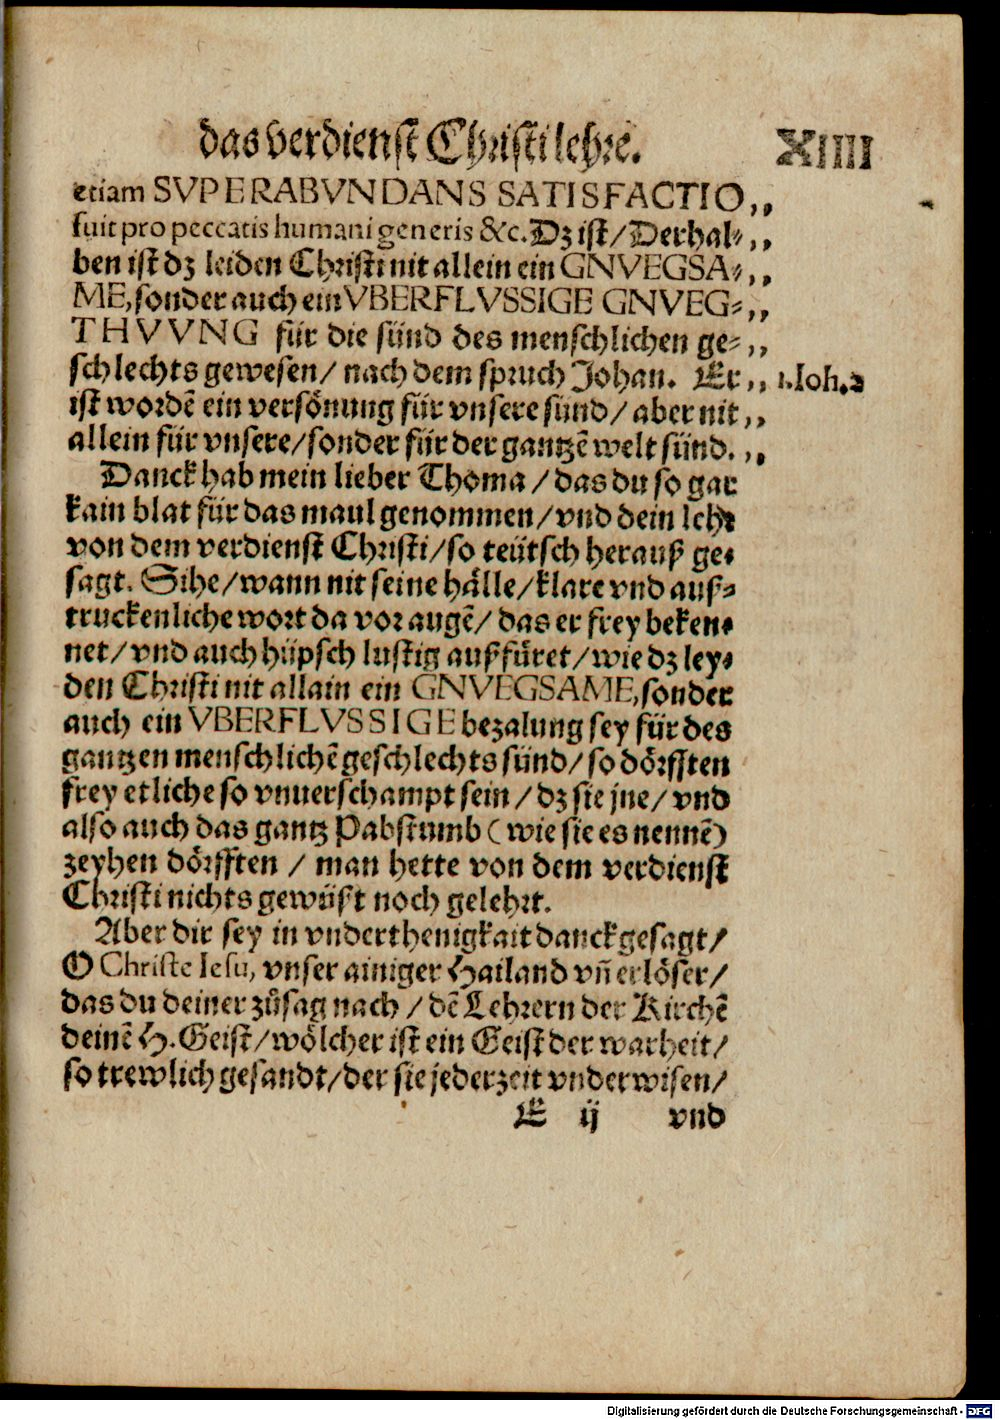 das verdienst Christi lehre. XIIII
etiam SVPERABVNDANS SATISFACTIO ,,
fuit pro peccatis humani generis &c. Dz ist / Derhal⸗ ,,
ben ist dz leiden Christi nit allein ein GNVEGSA⸗ ,,
ME, sonder auch ein VBERFLVSSIGE GNVEG⸗ ,,
THVVNG für die sünd des menschlichen ge⸗ ,,
schlechts gewesen / nach dem spruch Johan. Er ,, 1. Ioh. 2
ist wordē ein versönung für vnsere sünd / aber nit ,,
allein für vnsere / sonder für der gantzē welt sünd. ,,
Danck hab mein lieber Thoma / das du so gar
kain blat für das maul genommen / vnd dein lehr
von dem verdienst Christi / so teütsch herauß ge⸗
sagt. Sihe / wann nit seine hälle / klare vnd auß⸗
truckenliche wort da vor augē / das er frey beken⸗
net / vnd auch hüpsch lustig außfüret / wie dz ley⸗
den Christi nit allain ein GNVEGSAME, sonder
auch ein VBERFLVSSIGE bezalung sey für des
gantzen menschlichē geschlechts sünd / so dörfften
frey etliche so vnuerschampt sein / dz sie jne / vnd
also auch das gantz Pabstumb ( wie sie es nennē )
zeyhen dörfften / man hette von dem verdienst
Christi nichts gewüst noch gelehrt.
Aber dir sey in vnderthenigkait danck gesagt /
O Christe Iesu, vnser ainiger Hailand vñ erlöser /
das du deiner zůsag nach / dē Lehrern der Kirchē
deinē H. Geist / wölcher ist ein Geist der warheit /
so trewlich gesandt / der sie jederzeit vnderwisen /
E ij vnd
Digitalisierung gefördert durch die Deutsche Forschungsgemeinschaft - DFG